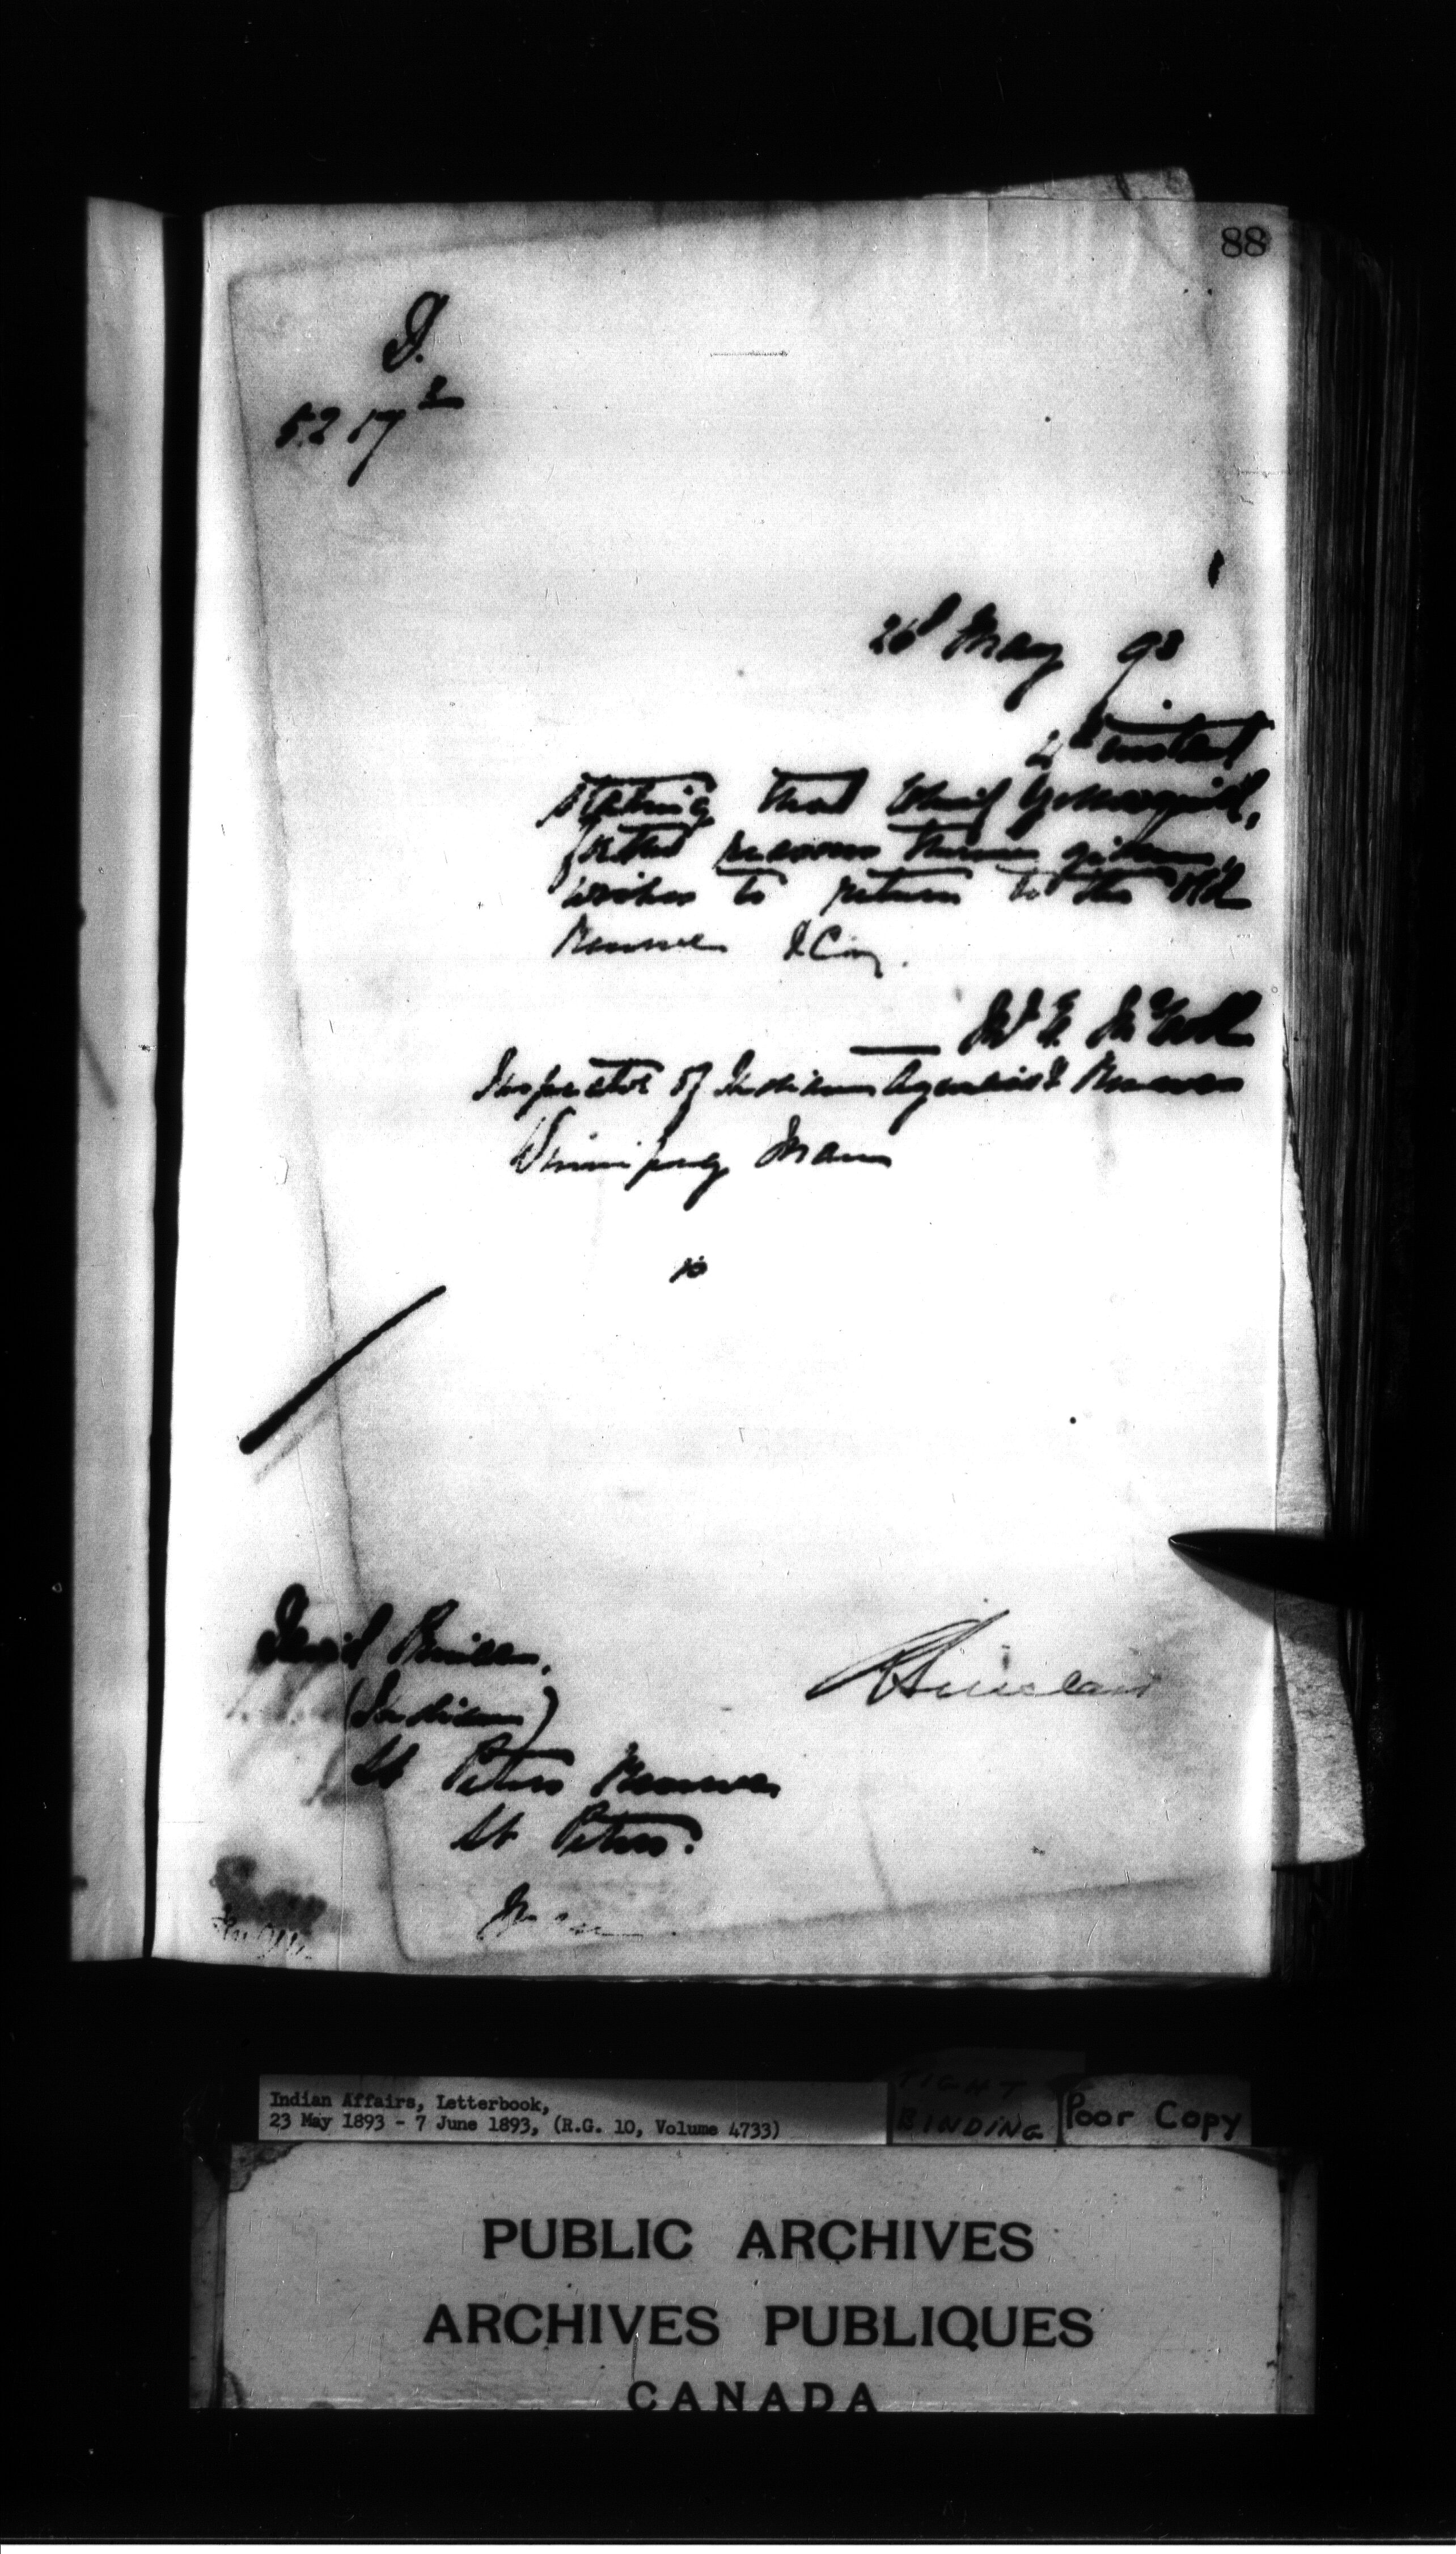 88
D.
5217²
26th May 93
4th instant
stating that Chief
for the reasons therein given,
wishes to return to the Old
Reserve &c
Mr E McColl
Inspector of Indian Agencies & Reserves
Winnipeg Man
David Prince,
(Indian)
St Peters Reserve,
St Peters.
Man
Sinclair
Indian Affairs, Letterbook,
23 May 1893 - 7 June 1893, (R.G. 10, Volume 4733)
TIGHT
BINDING
Poor Copy
PUBLIC ARCHIVES
ARCHIVES PUBLIQUES
CANADA